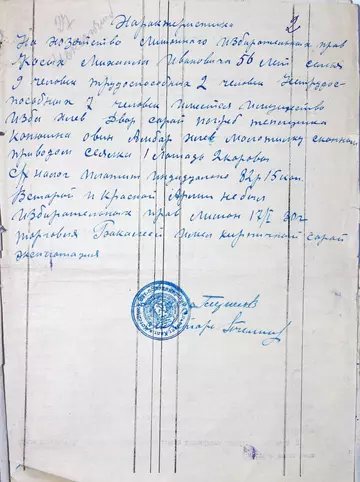 2
Характеристика
На хозяйство Лишенного Избирательных прав
Михаила Ивановича 56 лет семья
9 человек трудоспособных 2 человек Нетрудос-
пособных 7 человек имеется имущество
Изба хлев Двор сарай погреб
конюшня овин Амбар хлев Молотилка с конным
приводом сеялка 1 Лошадь 2 коровы
С/х налог платит индивидуально 82 р 15 коп.
В старой и Красной Армии не был
Избирательных прав лишон 17/I 30 г
торговля Бакалеей имел кирпичный сарай
эксплотация